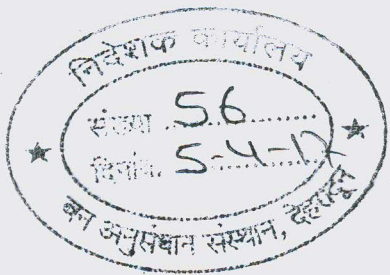 निदेशक कार्यालय
संख्या ..... 56 ............
दिनांक. 5-4-17
वन अनुसंधान संस्थान, देहरादून